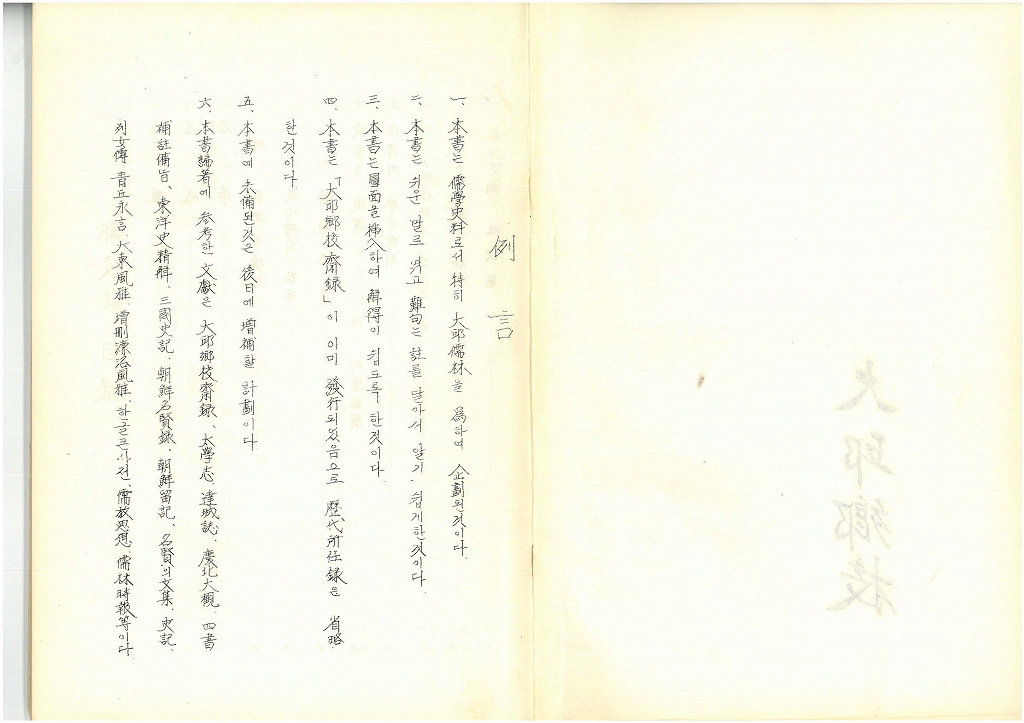 大邱鄕校
例言
一、本書는 儒學史料로서 特히 大邱儒林을 爲하여 企劃된것이다.
二、本書는 쉬운 말로 엮고 難句는 註를 달아서 알기 쉽게한것이다.
三、本書는 圖面을 揷入하여 解得이 쉽도록 한것이다.
四、本書는「大邱鄕校齋錄」이 이미 發行되었음으로 歷代所任錄은 省略
한것이다.
五、本書에 未備된것은 後日에 增補할 計劃이다
六、本書編著에 參考한 文獻은 大邱鄕校齋錄、太學志、達城誌、慶北大觀、四書
補註備旨、東洋史精解、三國史記、朝鮮名賢錄、朝鮮留記、名賢의文集、史記、
列女傳 靑丘永言、大東風雅、增刪濂洛風雅、한글큰사전、儒敎思想、儒林時報等이다